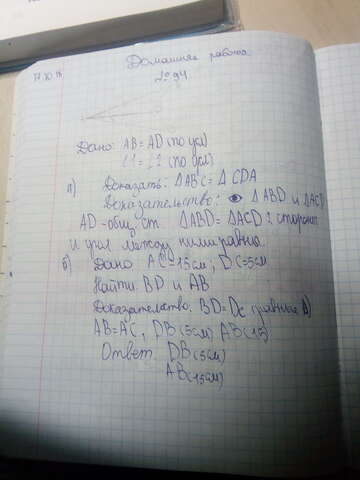 17.10.18
Домашняя работа
№94
Дано: AB=AD (по усл)
∠1=∠2 (по усл)
а) Доказать: ΔABC=ΔCDA
Доказательство: ΔABD и ΔACD
AD-общ. ст. ΔABD=ΔACD 2 стороны
и угол между ними равны.
б) Дано AC=15см, DC=5см
Найти BD и AB
Доказательство. BD=DC (равные Δ)
AB=AC, DB (5см) AB (15)
Ответ. DB (5см)
AB (15см)